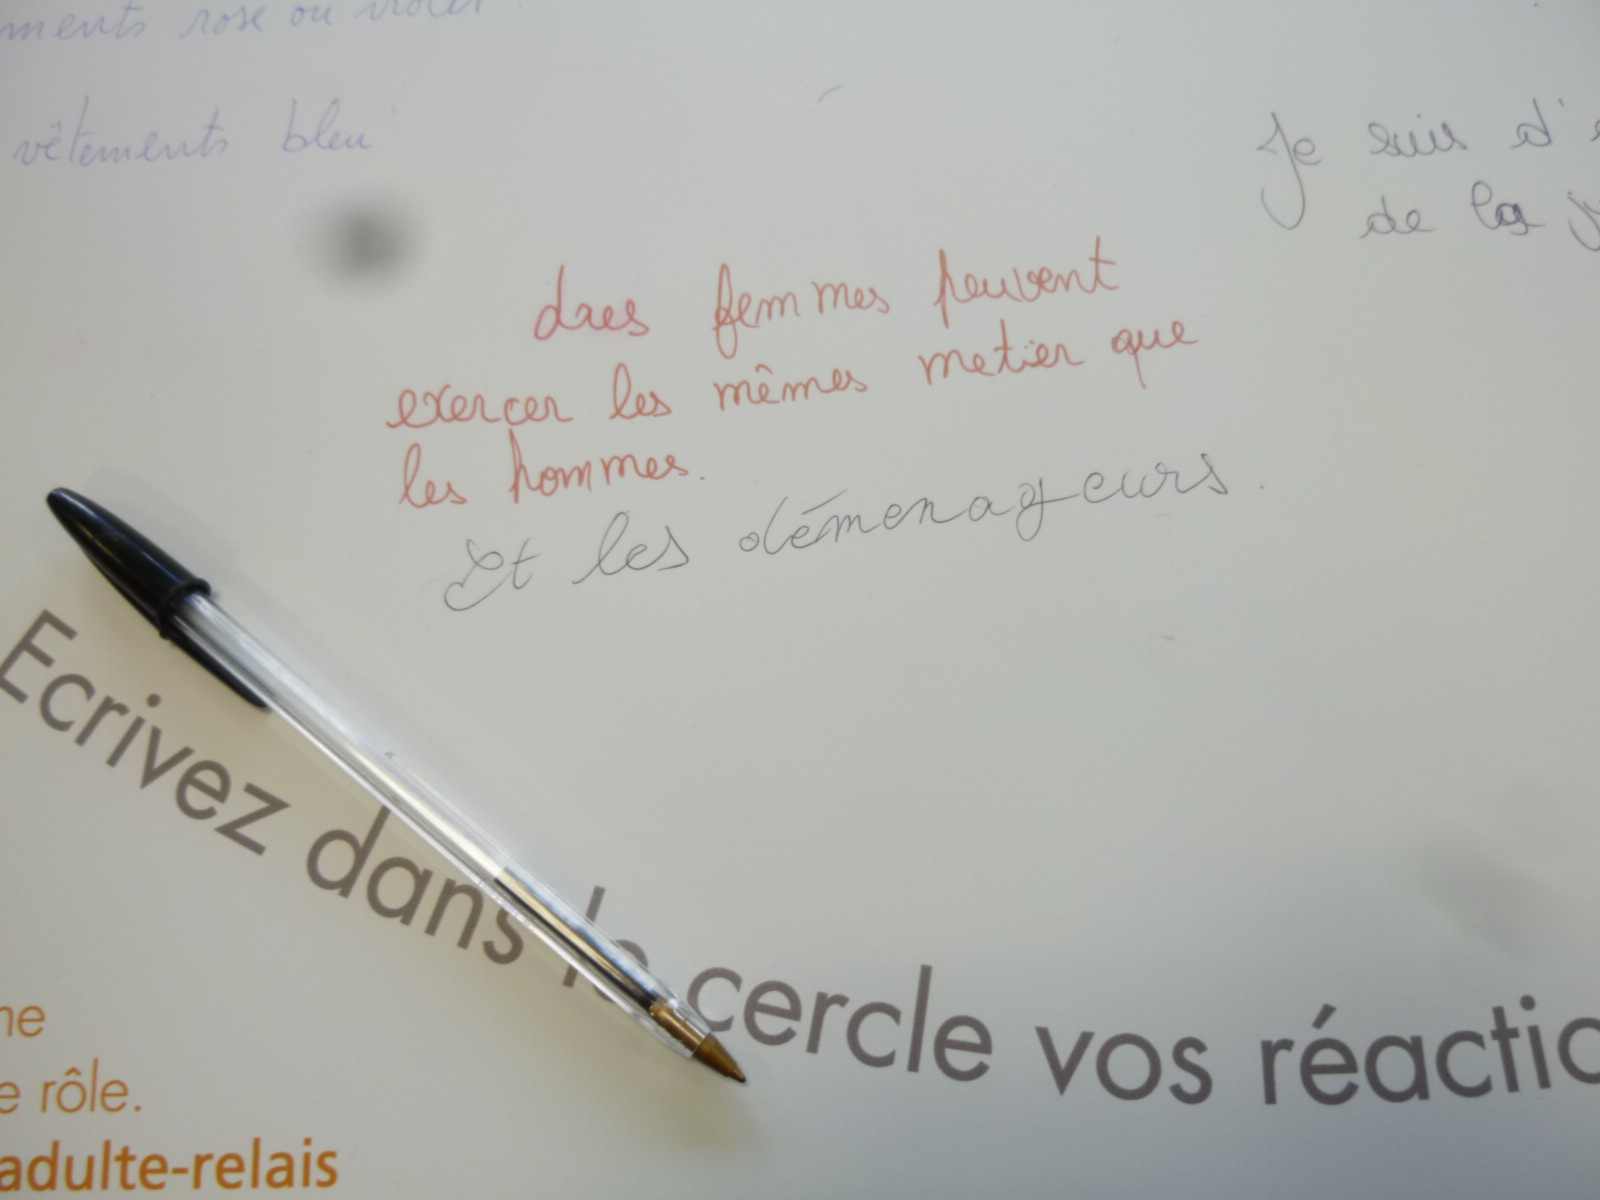 ments rose ou violet
vêtements bleu
Je suis d'
de la
femmes peuvent
exerçer les mêmes metier que
les hommes.
Et les déménageurs.
Ecrivez dans le cercle vos réactio
ne
e rôle.
adulte-relais